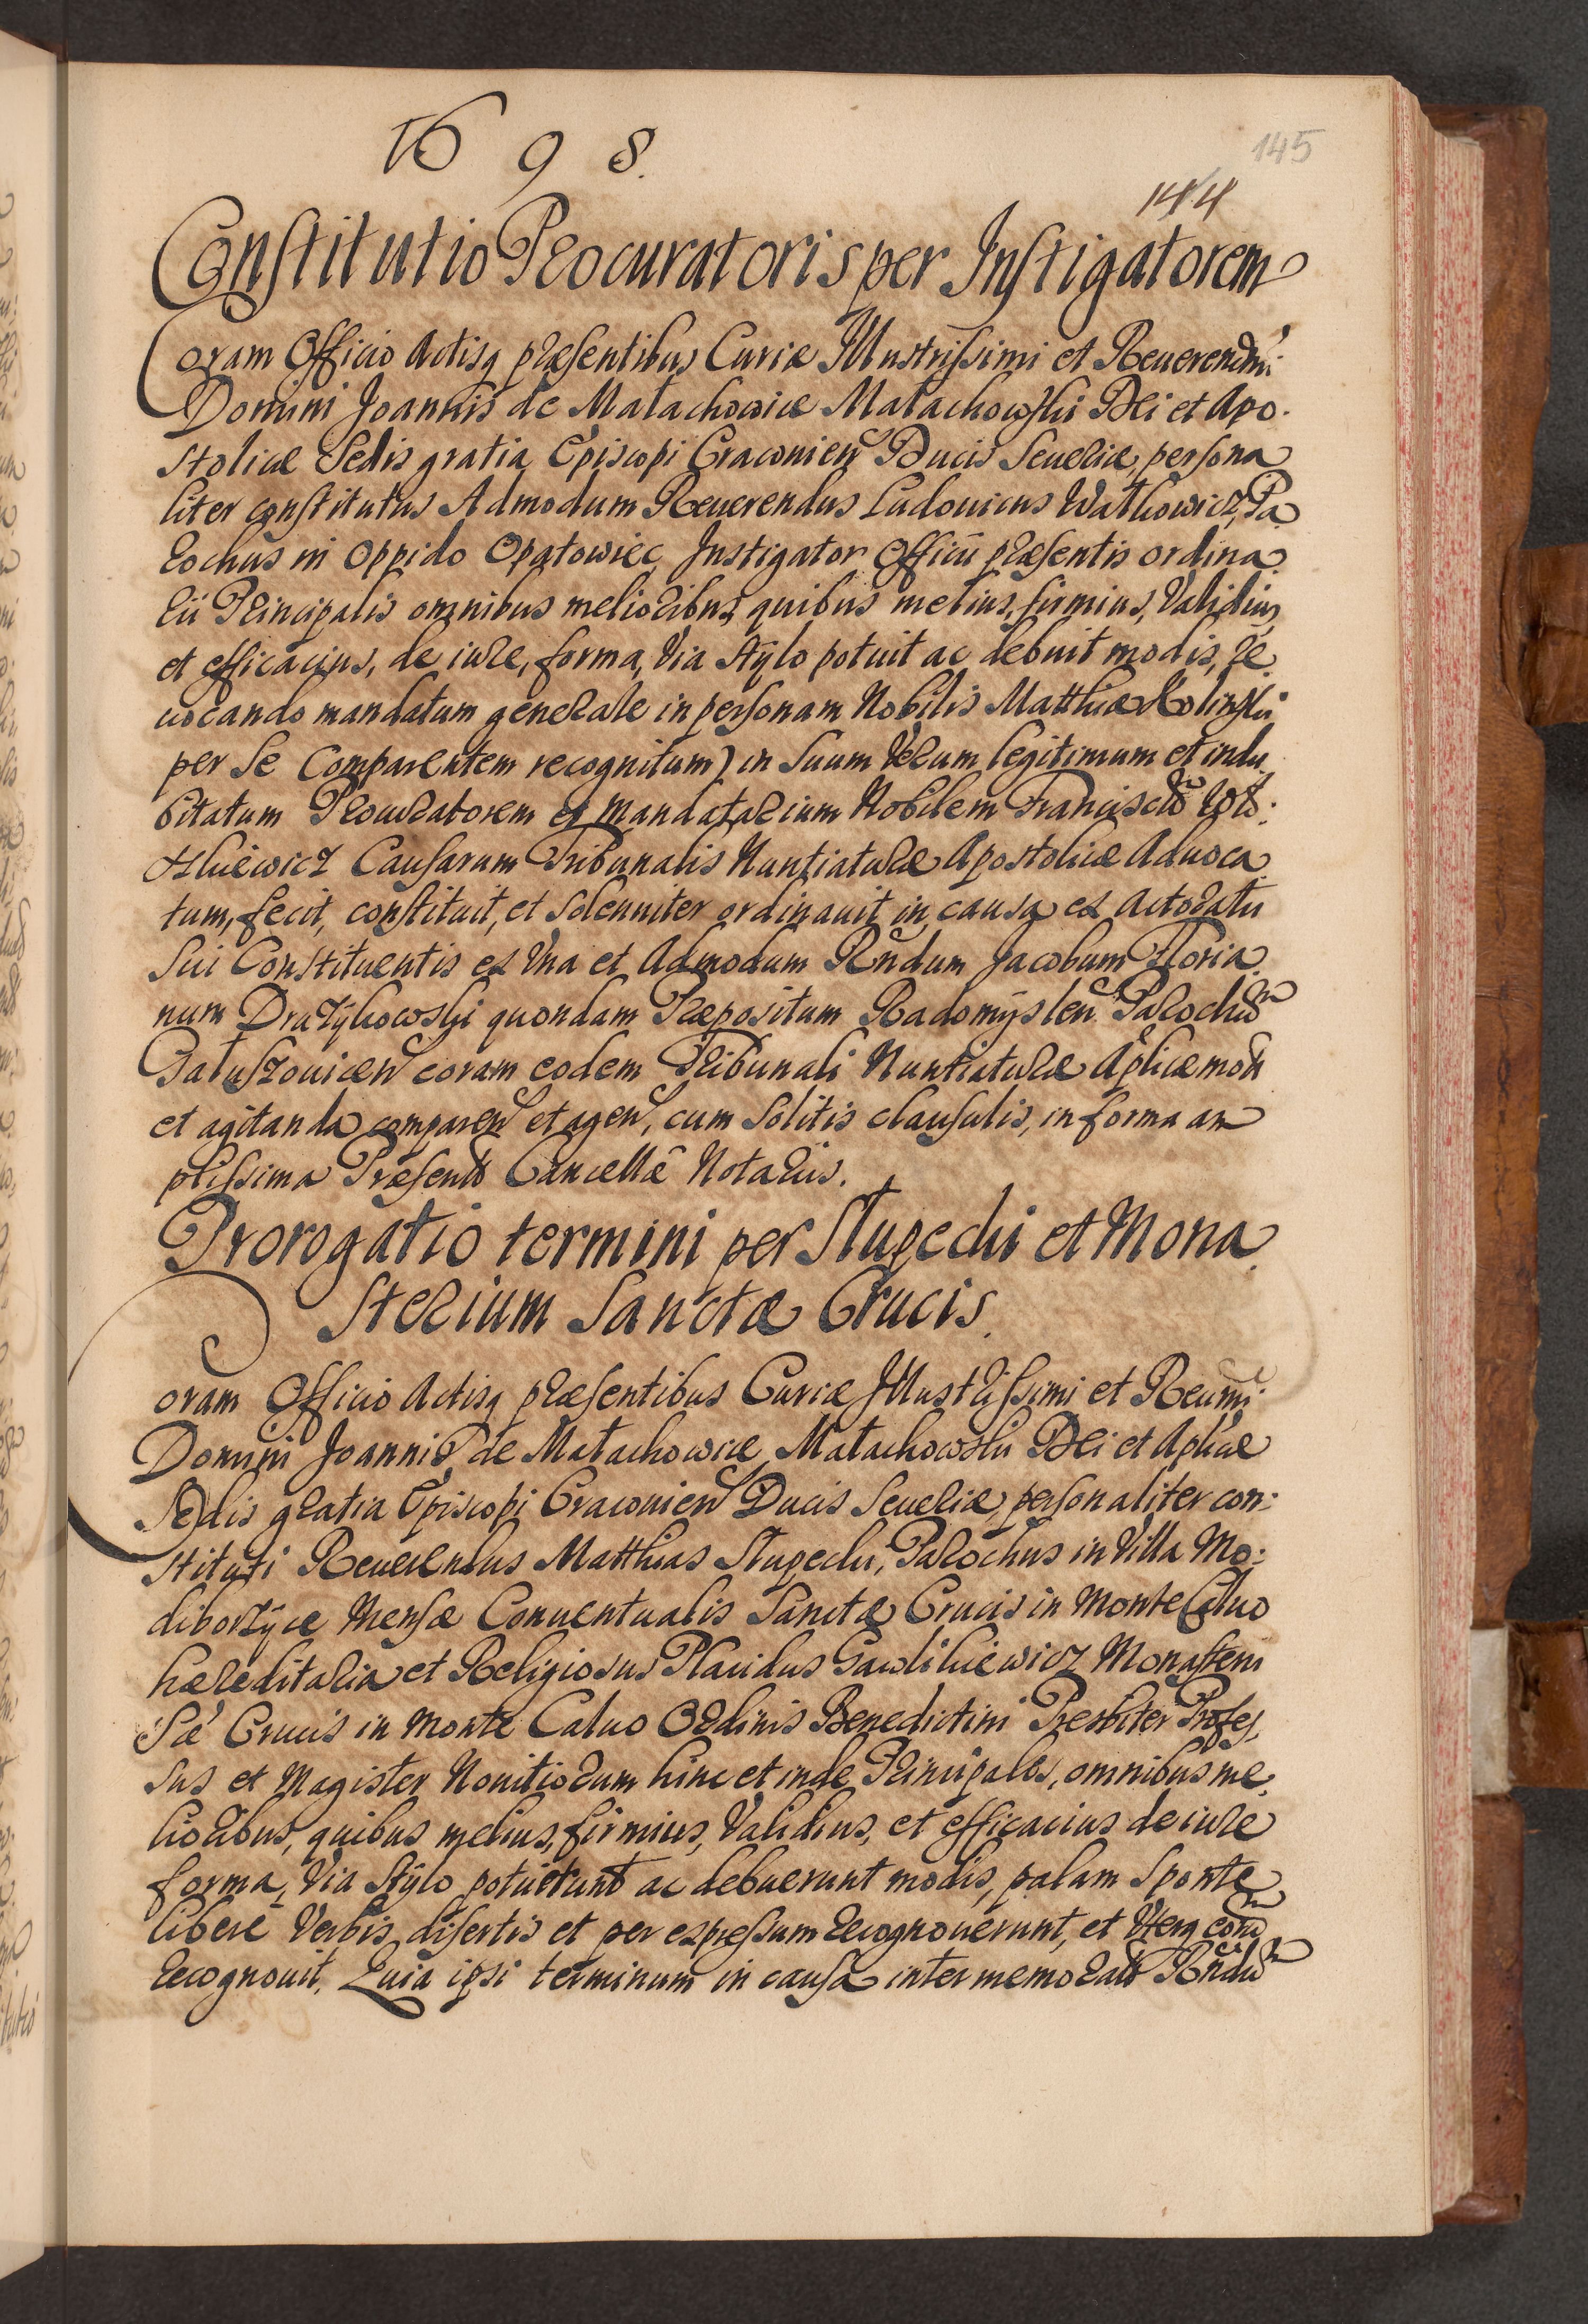 1698.
145
144
Constitutio Procuratoris per Instigatorem
Coram Officio Actisq præsentibus Curiæ Illustrissimi et Reuerendmi
Domini Joannis de Małachowice Małachowski Dei et Apo-
stolicæ Sedis gratia Episcopi Cracouien Ducis Seueriæ, persona
liter constitutus Admodum Reuerendus Ludouicus Wałkowicz, Pa
rochus in Oppido Opatowiec, Instigator Officii præsentis ordina
rii Principalis omnibus melioribus quibus melius, firmius, Validius
et efficacius, de iure, forma, Via stÿlo potuit ac debuit modis, re
uocando mandatum generale in personam Nobilis Matthiæ Kolinski
per se Comparentem recognitum) in Suum Verum legitimum et indu
bitatum Procuratorem et mandatarium Nobilem Franciscum
Causarum Tribunalis Nuntiaturæ Apostolicæ Aduoca
tum, fecit, constituit, et Solenniter ordinauit in causa ex Actoratu
Sui Constituentis ex Vna et Admodum Rndum Jacobum Floria
num DrazÿKowski quondam Præpositum Radomÿslen Parochum
coram eodem Tribunali Nuntiaturæ Aplicæ mota
et agitanda comparen et agen, cum Solitis clausulis, in forma am
plissima Præsent Cancellæ Notariis.
Prorogatio termini per Słupecki et Mona
sterium Sanctæ Crucis.
Coram Officio Actisq præsentibus Curiæ Illustrissimi et Reumi
Domini Joannis de Małachowice Małachowski Dei et Aplicæ
Sedis gratia Episcopi Cracouien Ducis Seueriæ, personaliter con-
stituti Reuerendus Matthias Słupecki, Parochus in Villa Mo-
diborzÿce Mensæ Conuentualis Sanctæ Crucis in Monte Caluo
hæreditaria et Religiosus Placidus Gawlikiewicz Monasterii
Sæ Crucis in Monte Caluo Ordinis Benedictini Presbiter Profes,
sus et Magister Nouitiorum hinc et inde Principales, omnibus me
lioribus, quibus melius, firmius, Validius, et efficacius de iure
forma, Via Stÿlo potuerunt ac debuerunt modis, palam Sponte
libere Verbis disertis et per expressum recognouerunt, et Vterq eorum
recognouit, Quia ipsi terminum in causa inter memoratum Rndum